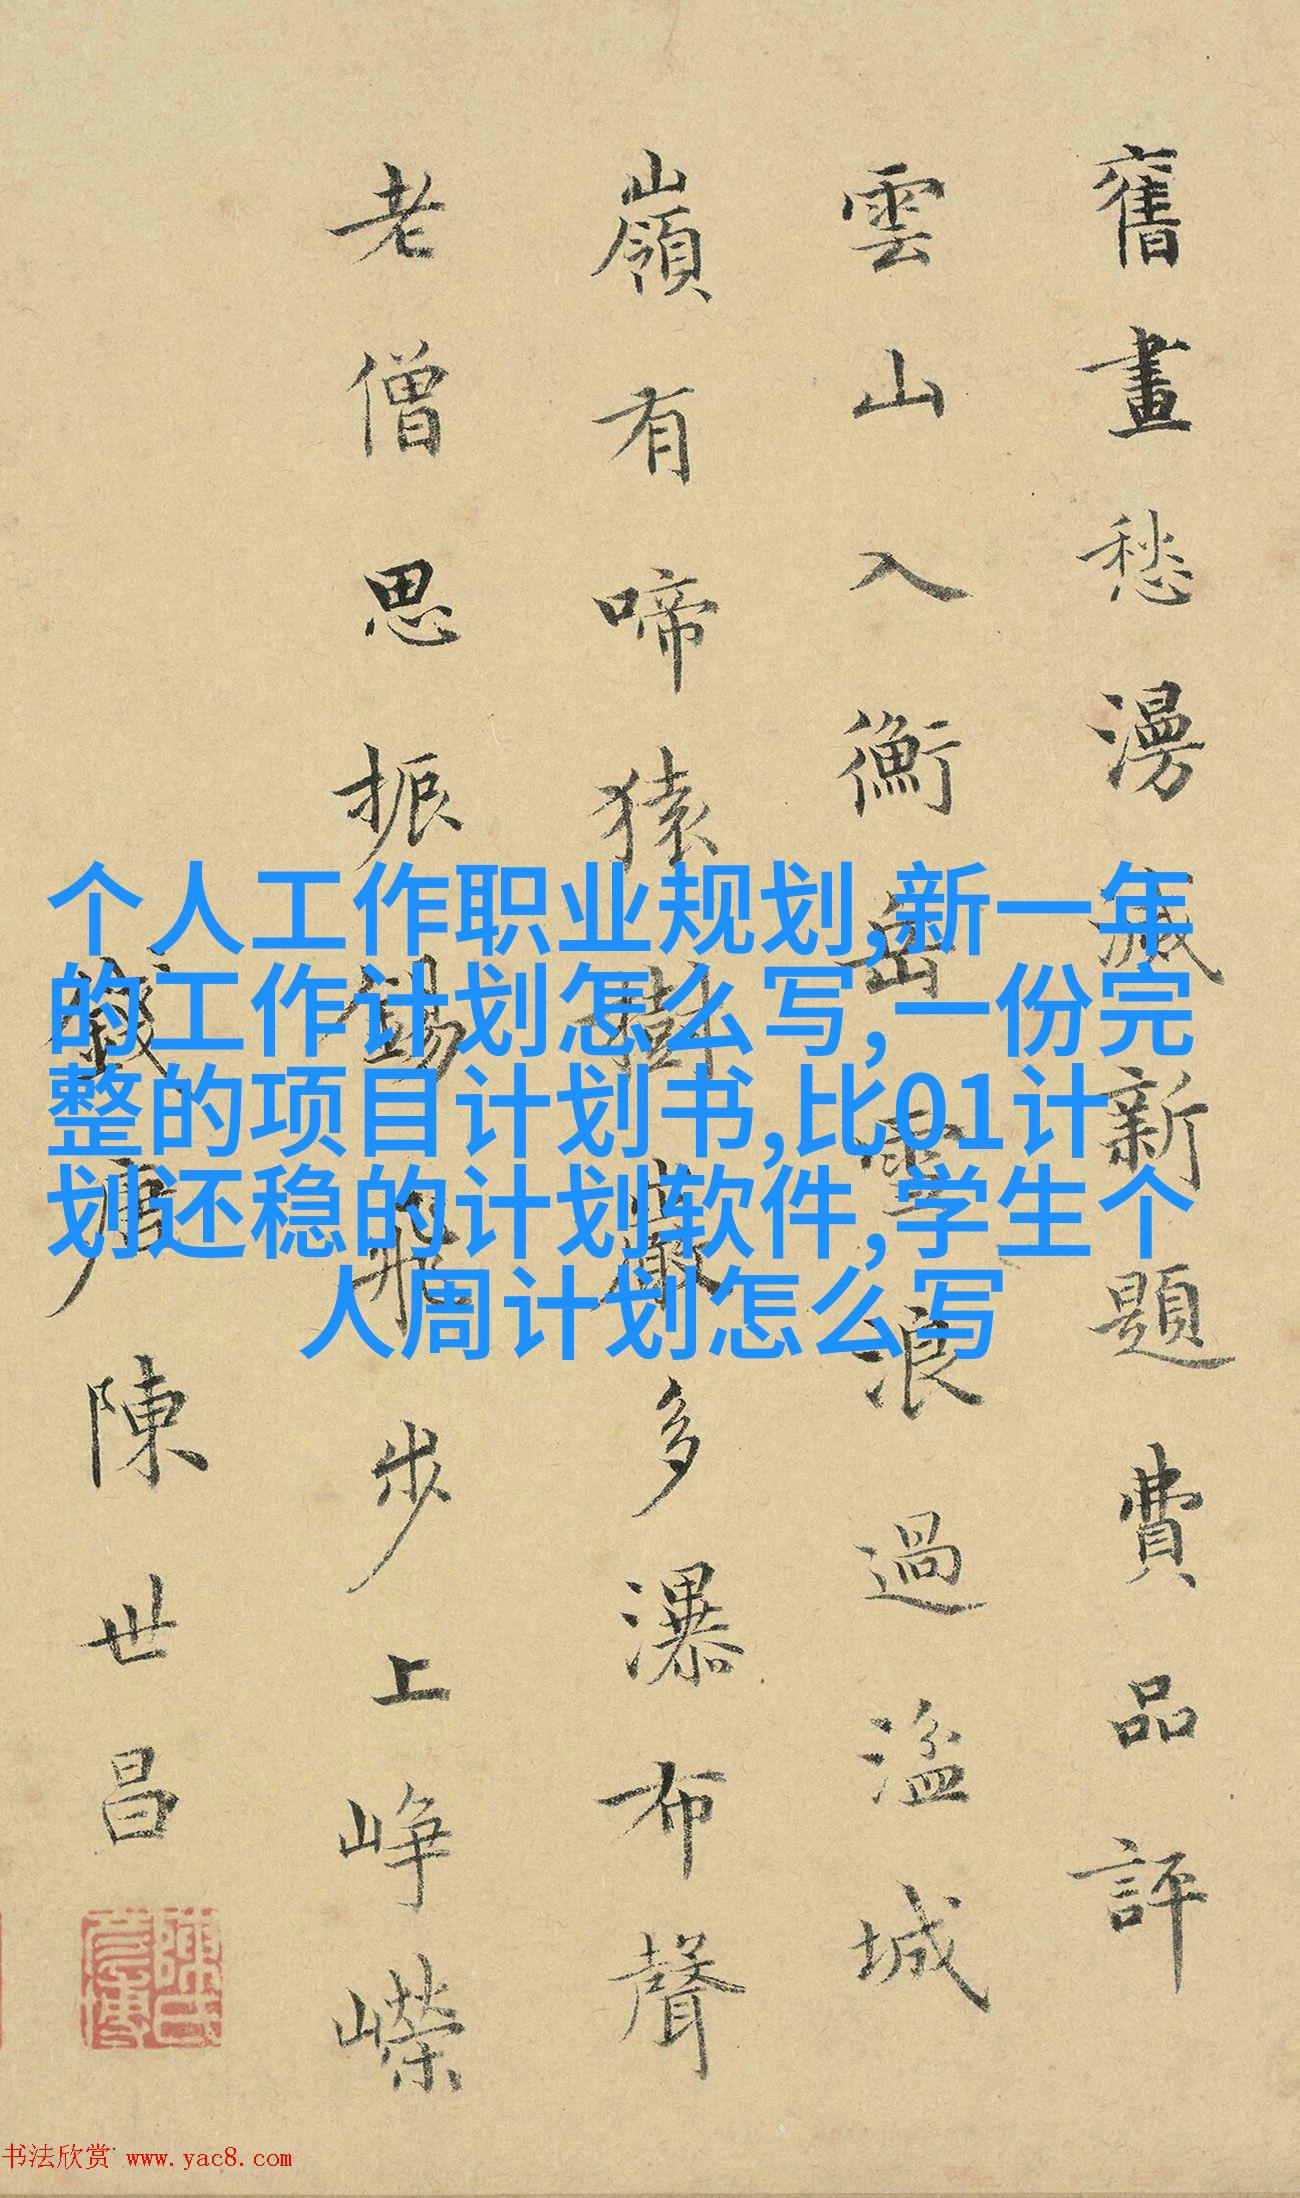 舊畫愁漫滅新題費品評
雲山入衡岳雪浪過湓城
嶺有啼猿樹巖多瀑布聲
老僧思振錫飛步上崢嶸
錢唐陳世昌
个人工作职业规划,新一年
的工作计划怎么写,一份完
整的项目计划书,比01计
划还稳的计划软件,学生个
人周计划怎么写
书法欣赏 www.yac8.com